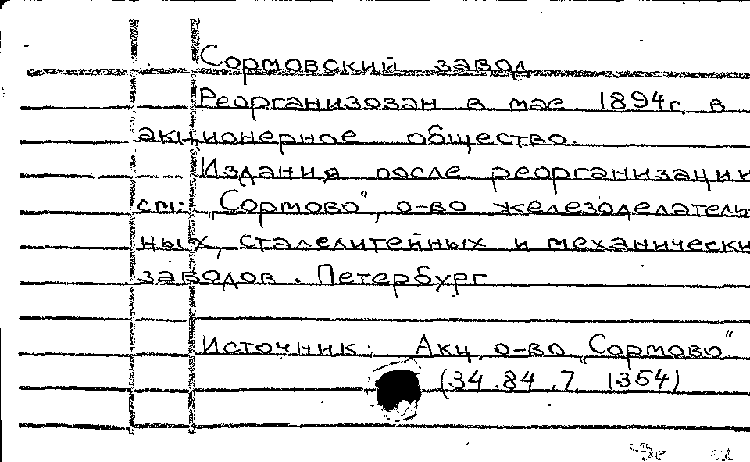 Сормовский завод
Реорганизован в мае 1894г. в
акционерное общество.
Издания после реорганизации
см: „Сормово", о-во железоделатель
ных, сталелитейных и механически
заводов. Петербург
Источник: Акц. о-во „Сормово"
(34.84.7. 1354)